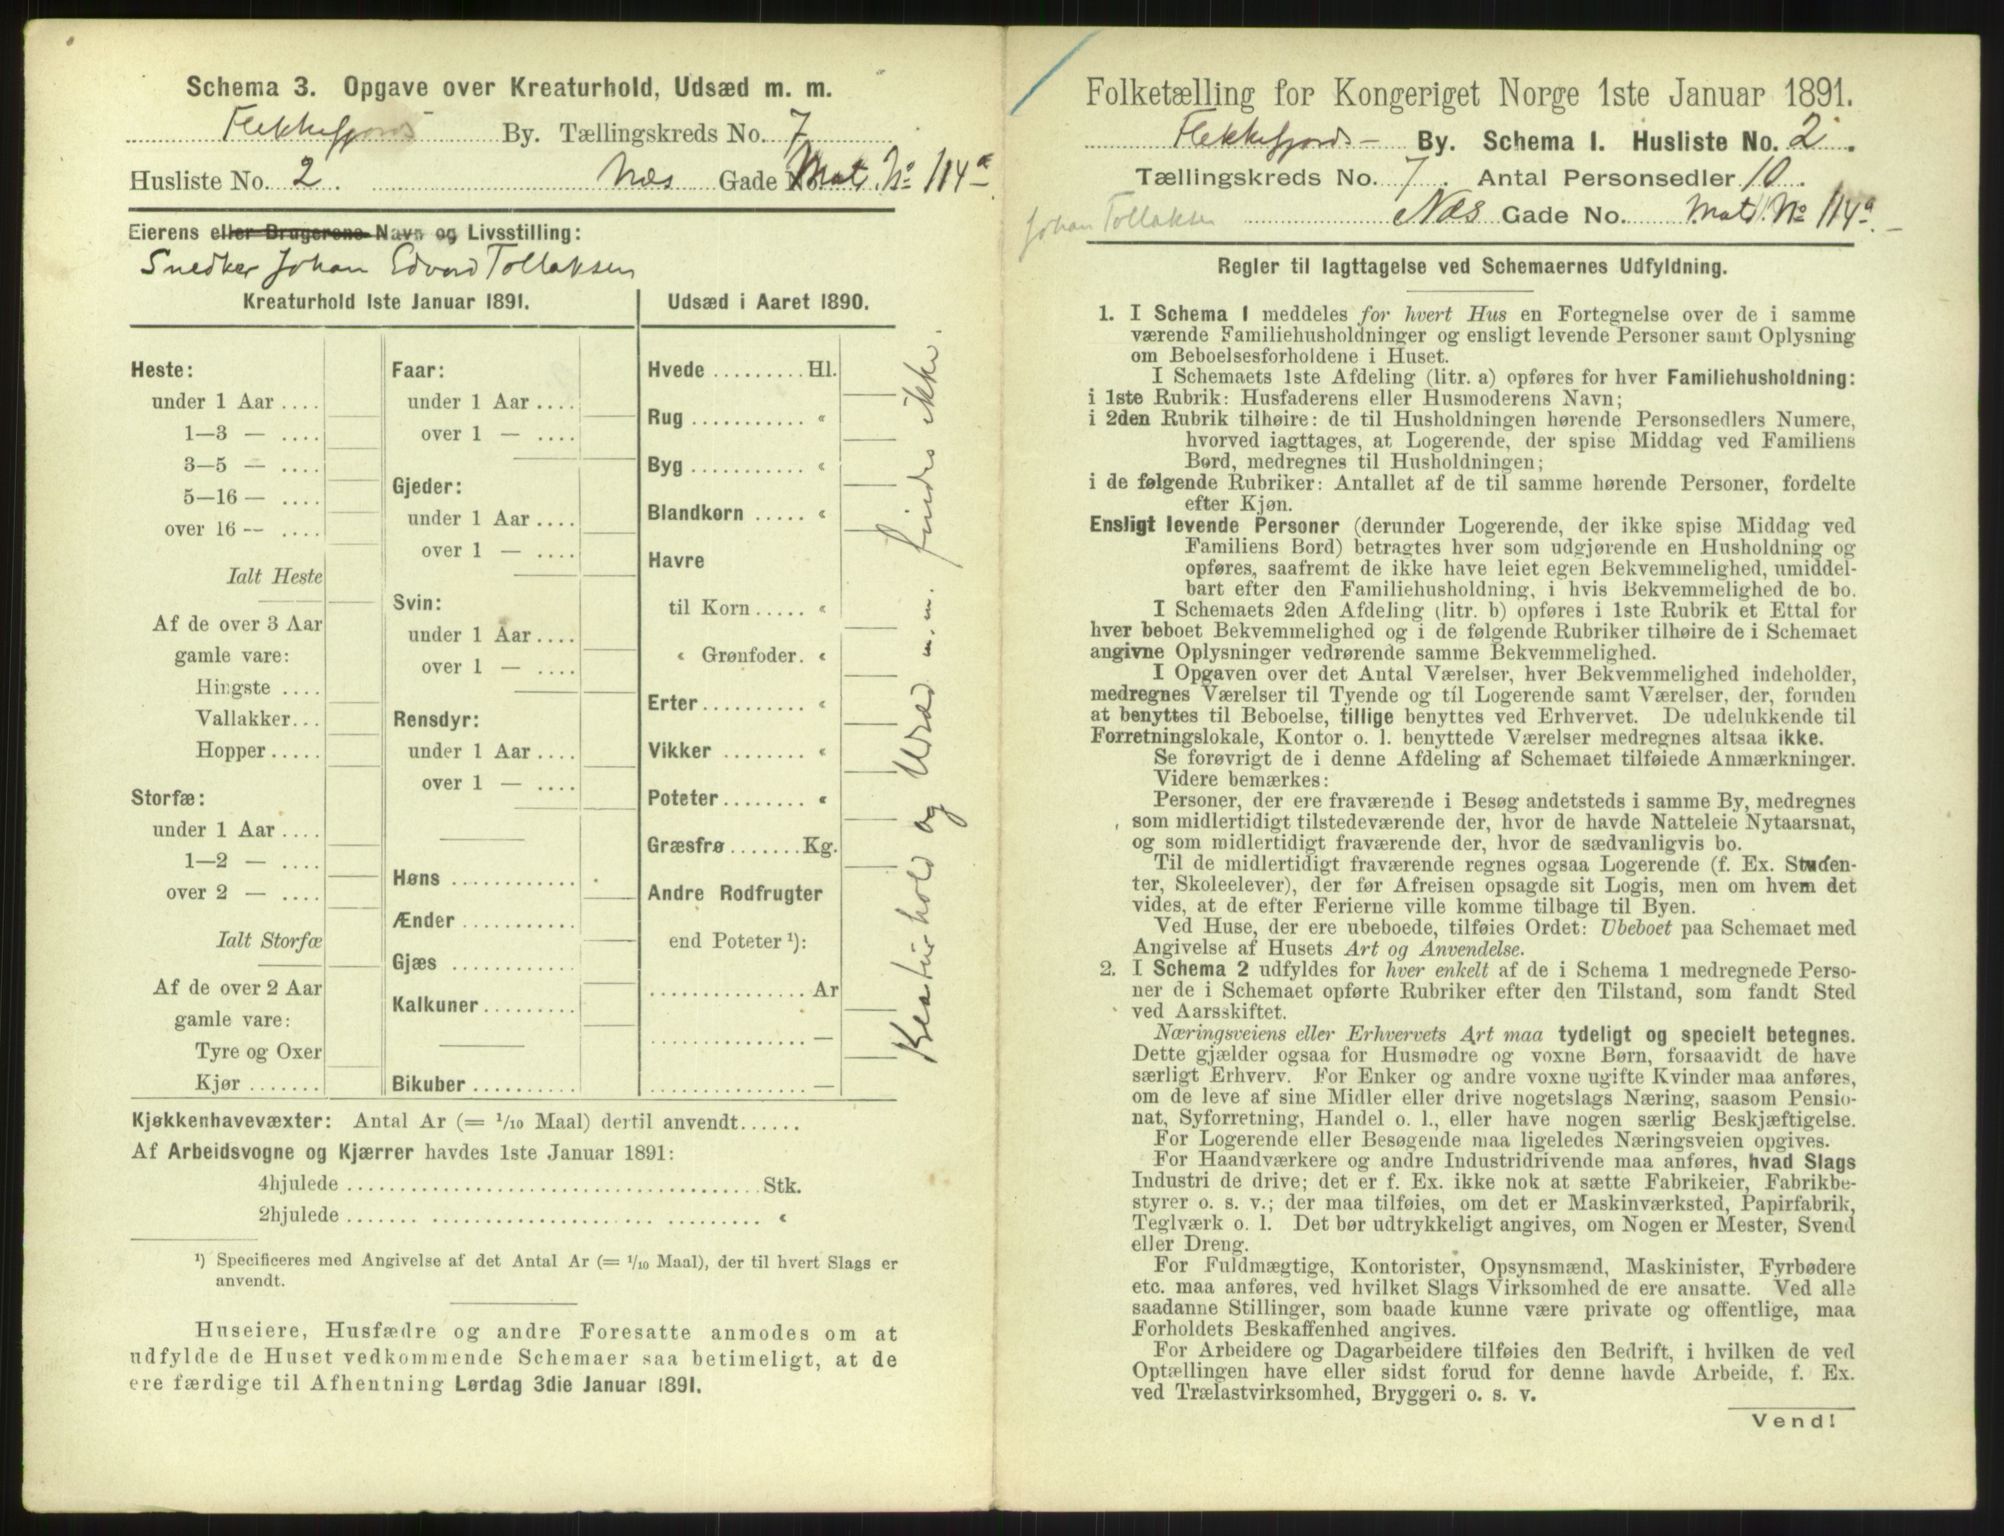 Schema 3. Opgave over Kreaturhold, Udsæd m. m.
Flekkefjords By. Tællingskreds No. 7
Husliste No. 2. Næs Gade No. Mat. No 114a
Eierens eller Brugerens Navn og Livsstilling:
Snedker Johan Edvard Tollaksen
Kreaturhold 1ste Januar 1891.
Heste:
under 1 Aar ....
1—3 — ....
3—5 — ....
5—16 — ....
over 16 — ....
Ialt Heste
Af de over 3 Aar
gamle vare:
Hingste ....
Vallakker...
Hopper .....
Storfæ:
under 1 Aar ....
1—2 — ....
over 2 — ....
Ialt Storfæ
Af de over 2 Aar
gamle vare:
Tyre og Oxer
Kjør .......
Faar:
under 1 Aar ....
over 1 — ....
Gjeder:
under 1 Aar ....
over 1 — ....
Svin:
under 1 Aar ....
over 1 — ....
Rensdyr:
under 1 Aar ....
over 1 — ....
Høns ............
Ænder ...........
Gjæs ............
Kalkuner .........
Bikuber ..........
Udsæd i Aaret 1890.
Hvede ......... Hl.
Rug ........... «
Byg ........... «
Blandkorn ..... «
Havre
til Korn ..... «
« Grønfoder. «
Erter.......... «
Vikker ........ «
Poteter ........ «
Græsfrø ....... Kg.
Andre Rodfrugter
end Poteter ¹):
............... Ar
............... —
............... —
Kreaturhold og Udsæd m.m. findes ikke.
Kjøkkenhavevæxter: Antal Ar (= 1/10 Maal) dertil anvendt......
Af Arbeidsvogne og Kjærrer havdes 1ste Januar 1891:
4hjulede ....................................... Stk.
2hjulede ....................................... «
¹) Specificeres med Angivelse af det Antal Ar (= 1/10 Maal), der til hvert Slags er
anvendt.
Huseiere, Husfædre og andre Foresatte anmodes om at
udfylde de Huset vedkommende Schemaer saa betimeligt, at de
ere færdige til Afhentning Lørdag 3die Januar 1891.
Folketælling for Kongeriget Norge 1ste Januar 1891.
Flekkefjords- By. Schema I. Husliste No. 2.
Tællingskreds No. 7. Antal Personsedler 10.
Johan Tollaksen Næs Gade No. Mat. No 114a.
Regler til Iagttagelse ved Schemaernes Udfyldning.
1. I Schema 1 meddeles for hvert Hus en Fortegnelse over de i samme
værende Familiehusholdninger og ensligt levende Personer samt Oplysning
om Beboelsesforholdene i Huset.
I Schemaets 1ste Afdeling (litr. a) opføres for hver Familiehusholdning:
i 1ste Rubrik: Husfaderens eller Husmoderens Navn;
i 2den Rubrik tilhøire: de til Husholdningen hørende Personsedlers Numere,
hvorved iagttages, at Logerende, der spise Middag ved Familiens
Bord, medregnes til Husholdningen;
i de følgende Rubriker: Antallet af de til samme hørende Personer, fordelte
efter Kjøn.
Ensligt levende Personer (derunder Logerende, der ikke spise Middag ved
Familiens Bord) betragtes hver som udgjørende en Husholdning og
opføres, saafremt de ikke have leiet egen Bekvemmelighed, umiddel-
bart efter den Familiehusholdning, i hvis Bekvemmelighed de bo.
I Schemaets 2den Afdeling (litr. b) opføres i 1ste Rubrik et Ettal for
hver beboet Bekvemmelighed og i de følgende Rubriker tilhøire de i Schemaet
angivne Oplysninger vedrørende samme Bekvemmelighed.
I Opgaven over det Antal Værelser, hver Bekvemmelighed indeholder,
medregnes Værelser til Tyende og til Logerende samt Værelser, der, foruden
at benyttes til Beboelse, tillige benyttes ved Erhvervet. De udelukkende til
Forretningslokale, Kontor o. l. benyttede Værelser medregnes altsaa ikke.
Se forøvrigt de i denne Afdeling af Schemaet tilføiede Anmærkninger.
Videre bemærkes:
Personer, der ere fraværende i Besøg andetsteds i samme By, medregnes
som midlertidigt tilstedeværende der, hvor de havde Natteleie Nytaarsnat,
og som midlertidigt fraværende der, hvor de sædvanligvis bo.
Til de midlertidigt fraværende regnes ogsaa Logerende (f. Ex. Studen-
ter, Skoleelever), der før Afreisen opsagde sit Logis, men om hvem det
vides, at de efter Ferierne ville komme tilbage til Byen.
Ved Huse, der ere ubeboede, tilføies Ordet: Ubeboet paa Schemaet med
Angivelse af Husets Art og Anvendelse.
2. I Schema 2 udfyldes for hver enkelt af de i Schema 1 medregnede Perso-
ner de i Schemaet opførte Rubriker efter den Tilstand, som fandt Sted
ved Aarsskiftet.
Næringsveiens eller Erhvervets Art maa tydeligt og specielt betegnes.
Dette gjælder ogsaa for Husmødre og voxne Børn, forsaavidt de have
særligt Erhverv. For Enker og andre voxne ugifte Kvinder maa anføres,
om de leve af sine Midler eller drive nogetslags Næring, saasom Pensio-
nat, Syforretning, Handel o. l., eller have nogen særlig Beskjæftigelse.
For Logerende eller Besøgende maa ligeledes Næringsveien opgives.
For Haandværkere og andre Industridrivende maa anføres, hvad Slags
Industri de drive; det er f. Ex. ikke nok at sætte Fabrikeier, Fabrikbe-
styrer o. s. v.; der maa tilføies, om det er Maskinværksted, Papirfabrik,
Teglværk o. l. Det bør udtrykkeligt angives, om Nogen er Mester, Svend
eller Dreng.
For Fuldmægtige, Kontorister, Opsynsmænd, Maskinister, Fyrbødere
etc. maa anføres, ved hvilket Slags Virksomhed de ere ansatte. Ved alle
saadanne Stillinger, som baade kunne være private og offentlige, maa
Forholdets Beskaffenhed angives.
For Arbeidere og Dagarbeidere tilføies den Bedrift, i hvilken de ved
Optællingen have eller sidst forud for denne havde Arbeide, f. Ex.
ved Trælastvirksomhed, Bryggeri o. s. v.
Vend!